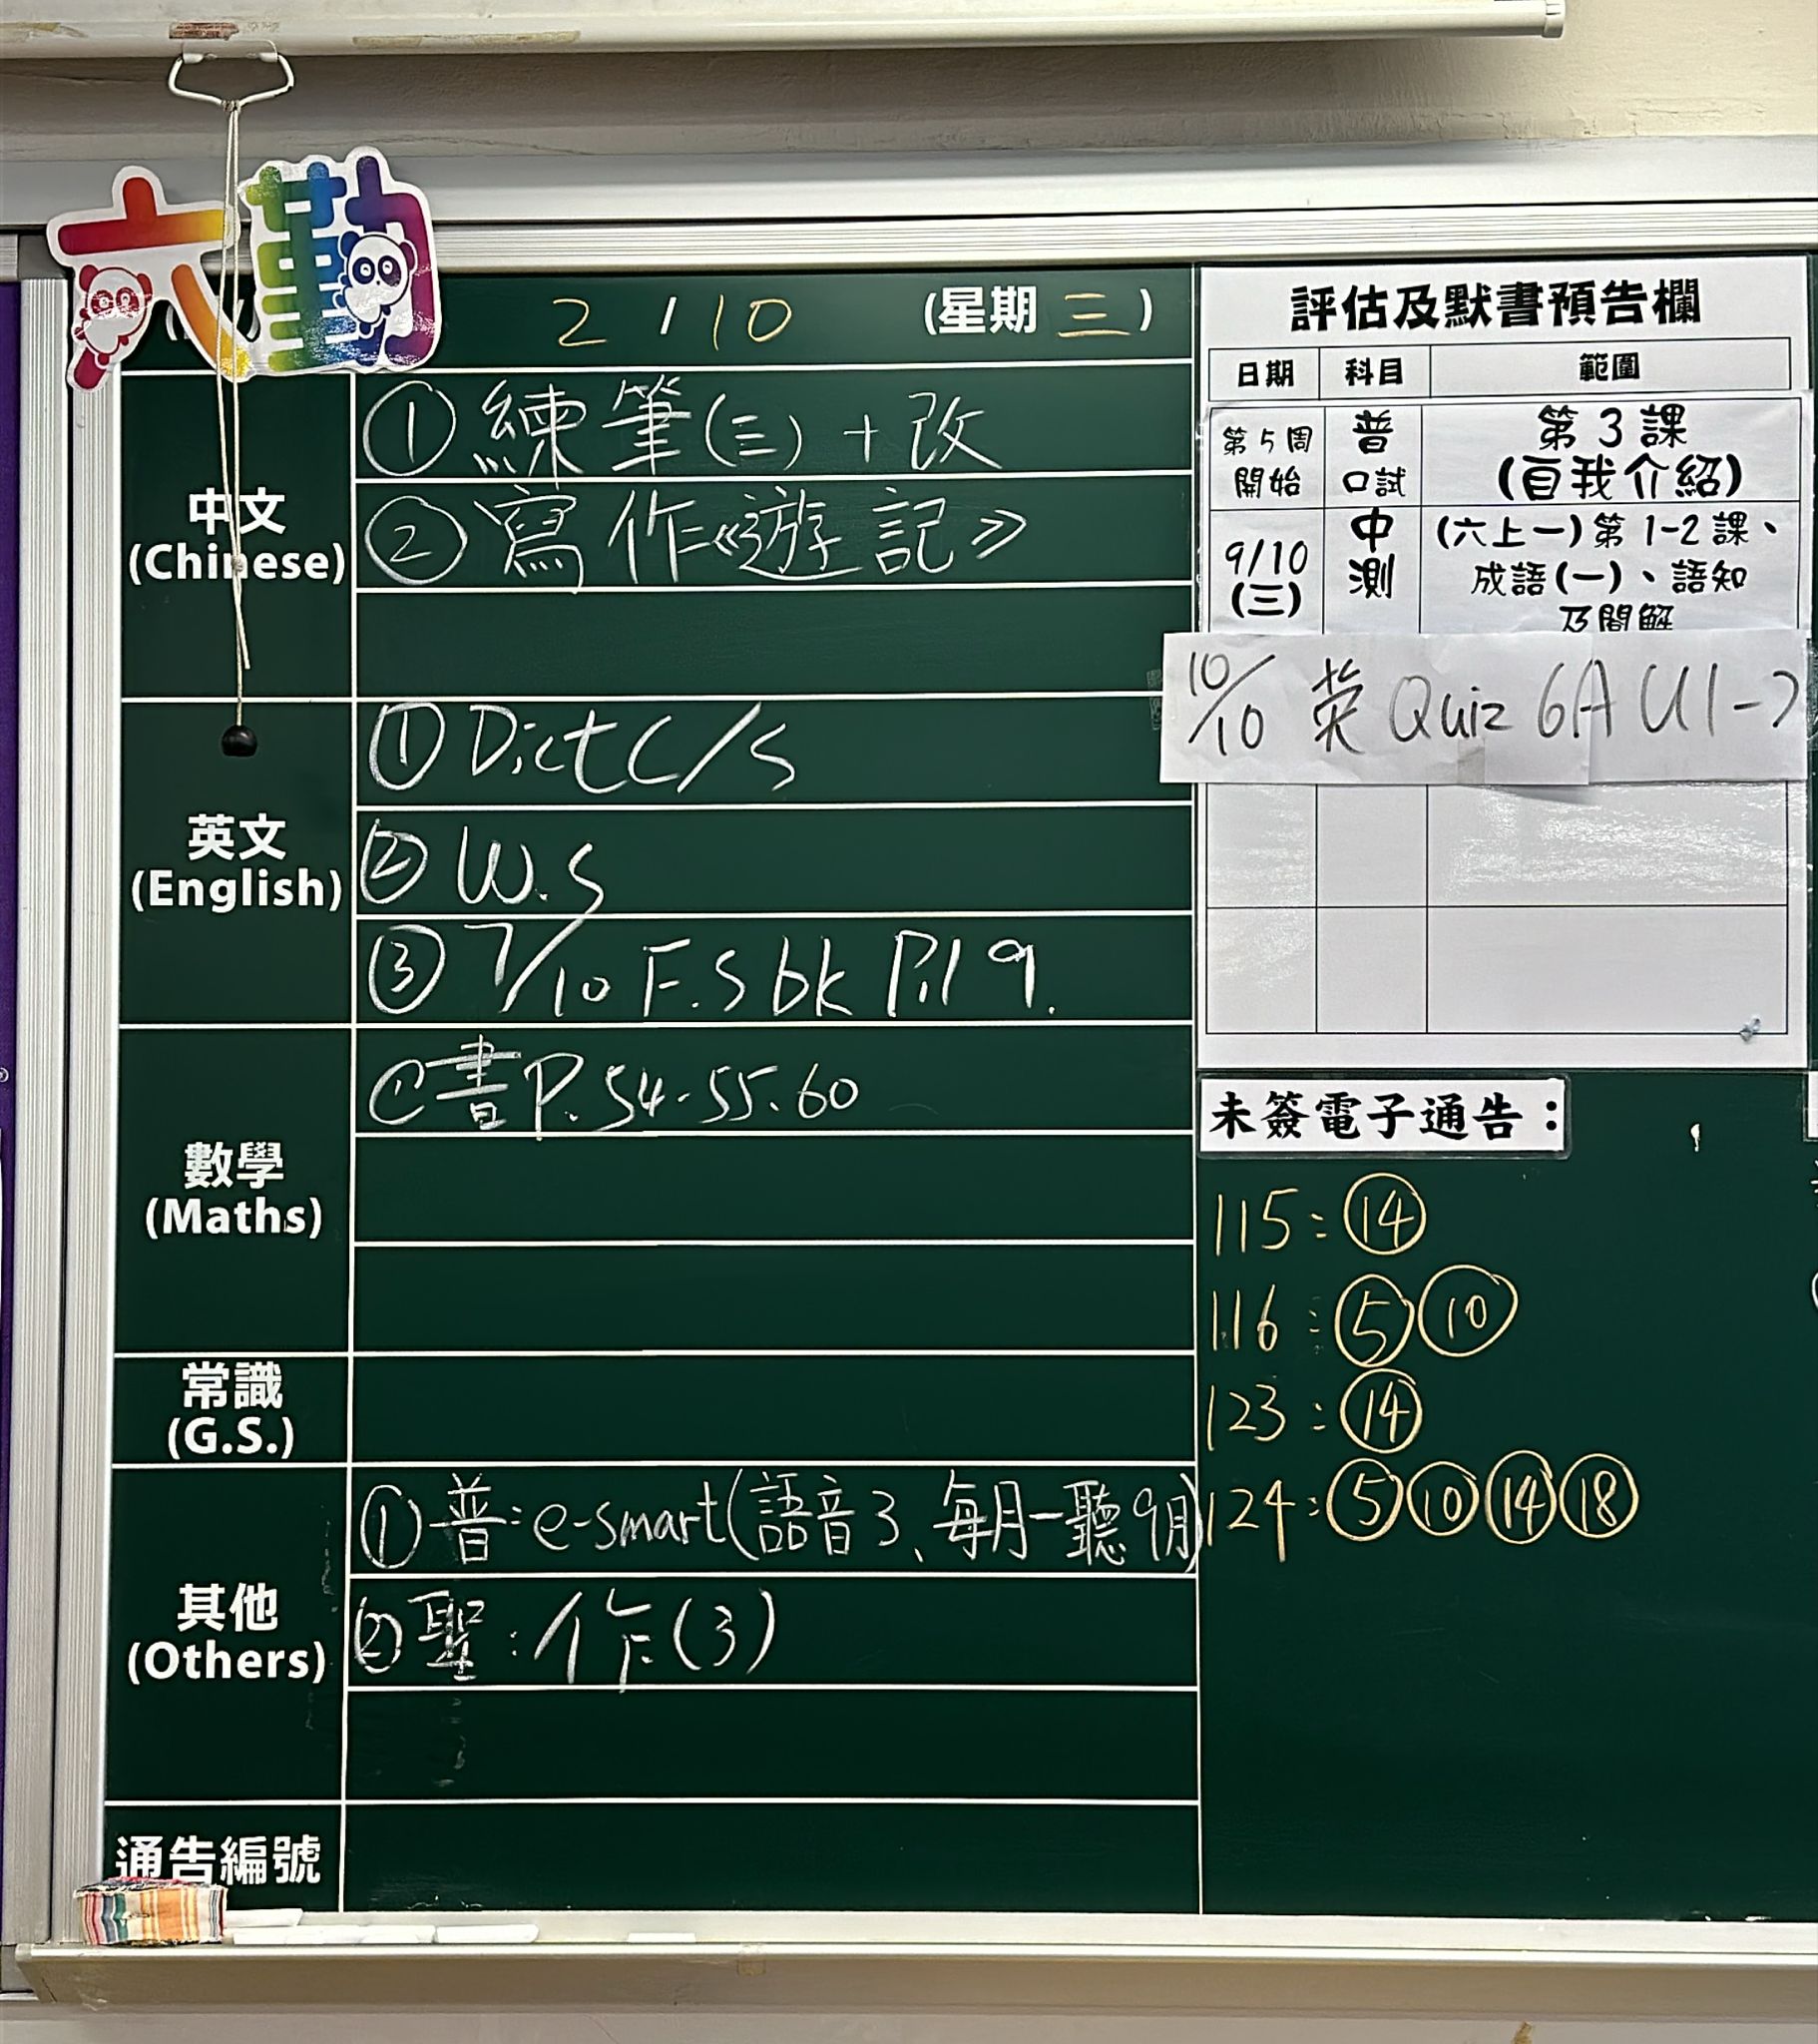 六勤
2 / 10 (星期 三)
中文
(Chinese)
① 練筆(三) + 改
② 寫作《遊記》
英文
(English)
① Dict C/S
② W.S
③ 7/10 F.S bk P.19.
數學
(Maths)
① 書 P. 54-55.60
常識
(G.S.)
其他
(Others)
① 普: e-smart(語音3、每月一聽9月)
② 聖: 作(3)
通告編號
評估及默書預告欄
日期 科目 範圍
第5周開始 普口試 第3課(自我介紹)
9/10(三) 中測 (六上一)第1-2課、
成語(一)、語知
及閱解
10/10 英 Quiz 6A U1-
未簽電子通告：
115: ⑭
116: ⑤ ⑩
123: ⑭
124: ⑤ ⑩ ⑭ ⑱